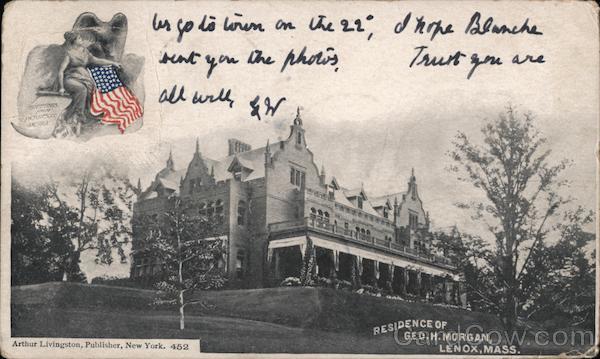 We go to town on the 22ᵈ, I hope Blanche
sent you the photos, Trust you are
all well,
RESIDENCE OF
GEO. H. MORGAN
LENOX, MASS.
Arthur Livingston, Publisher, New York. 452
CardCow.com